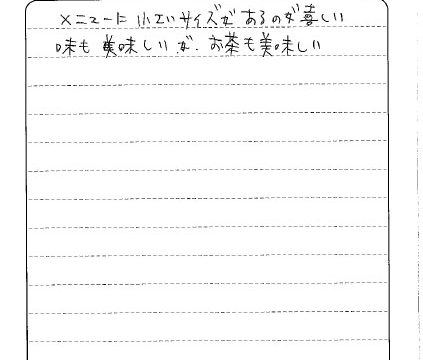 メニューに小さいサイズがあるのが喜しい
味も美味しいが、お茶も美味しい